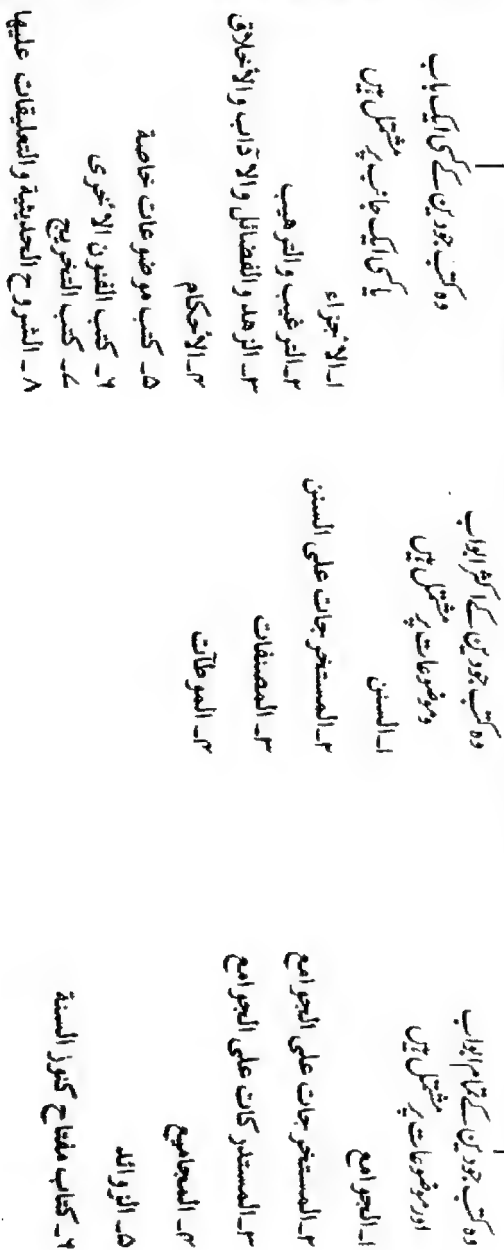 وہ کتب جو دین کے تمام ابواب
اور موضوعات پر مشتمل ہیں
١۔ الجوامع
٢۔ المستخرجات علی الجوامع
٣۔ المستدرکات علی الجوامع
۴۔ المجامیع
۵۔ الزوائد
۶۔ کتاب مفتاح کنوز السنة
وہ کتب جو دین کے اکثر ابواب
وموضوعات پر مشتمل ہیں
١۔ السنن
٢۔ المستخرجات علی السنن
٣۔ المصنفات
۴۔ الموطآت
وہ کتب جو دین کے کسی ایک باب
یا کسی ایک جانب پر مشتمل ہیں
١۔ الأجزاء
٢۔ الترغیب والترهیب
٣۔ الزهد والفضائل والآداب والأخلاق
۴۔ الأحکام
۵۔ کتب موضوعات خاصة
۶۔ کتب الفنون الأخری
۷۔ کتب التخریج
۸۔ الشروح الحدیثیة والتعلیقات علیها